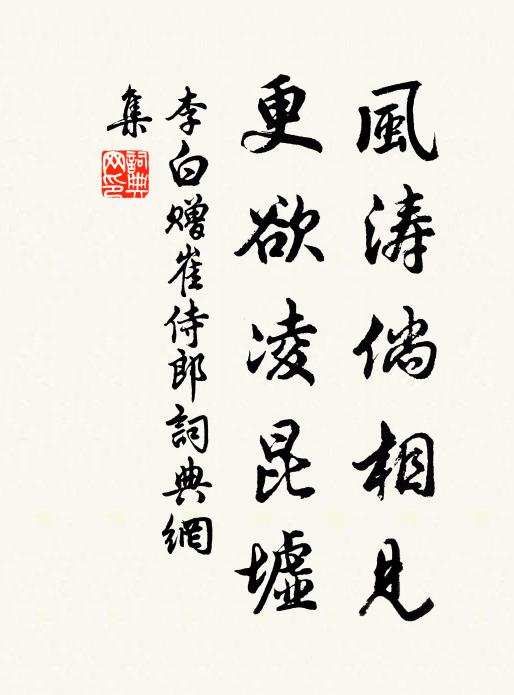 風涛倘相見
更欲凌昆墟
李白赠崔侍郎詞典網
集
詞典
网印